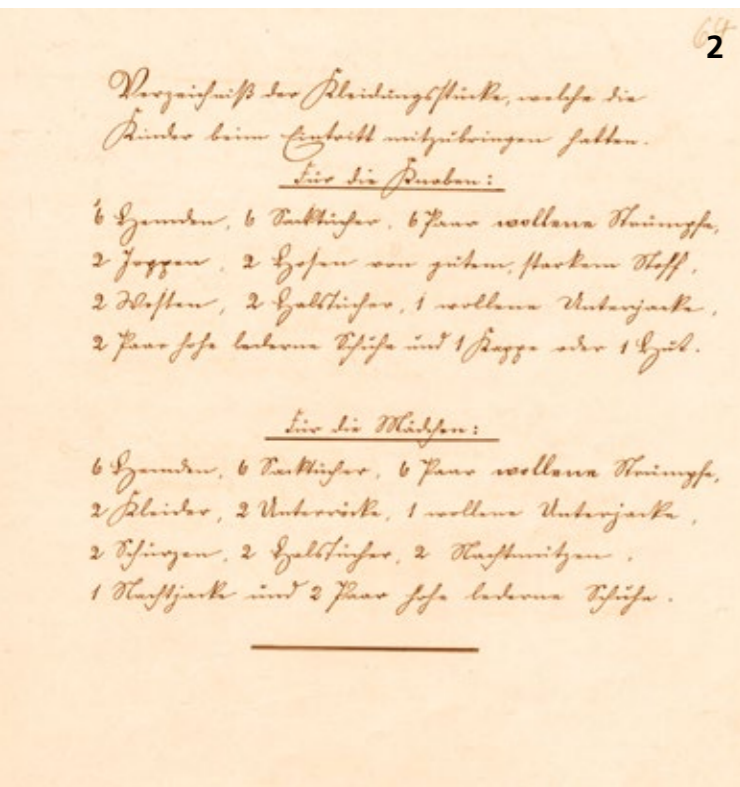 2
Verzeichniß der Kleidungsstücke, welche die
Kinder beim Eintritt mitzubringen hatten.
Für die Knaben:
6 Hemden, 6 Sacktücher, 6 Paar wollene Strümpfe,
2 Joppen, 2 Hosen von gutem, starkem Stoff,
2 Westen, 2 Halstücher, 1 wollene Unterjacke,
2 Paar hohe lederne Schuhe und 1 Kappe oder 1 Hut.
Für die Mädchen:
6 Hemden, 6 Sacktücher, 6 Paar wollene Strümpfe,
2 Kleider, 2 Unterröcke, 1 wollene Unterjacke,
2 Schürzen, 2 Halstücher, 2 Nachtmützen,
1 Nachtjacke und 2 Paar hohe lederne Schuhe.